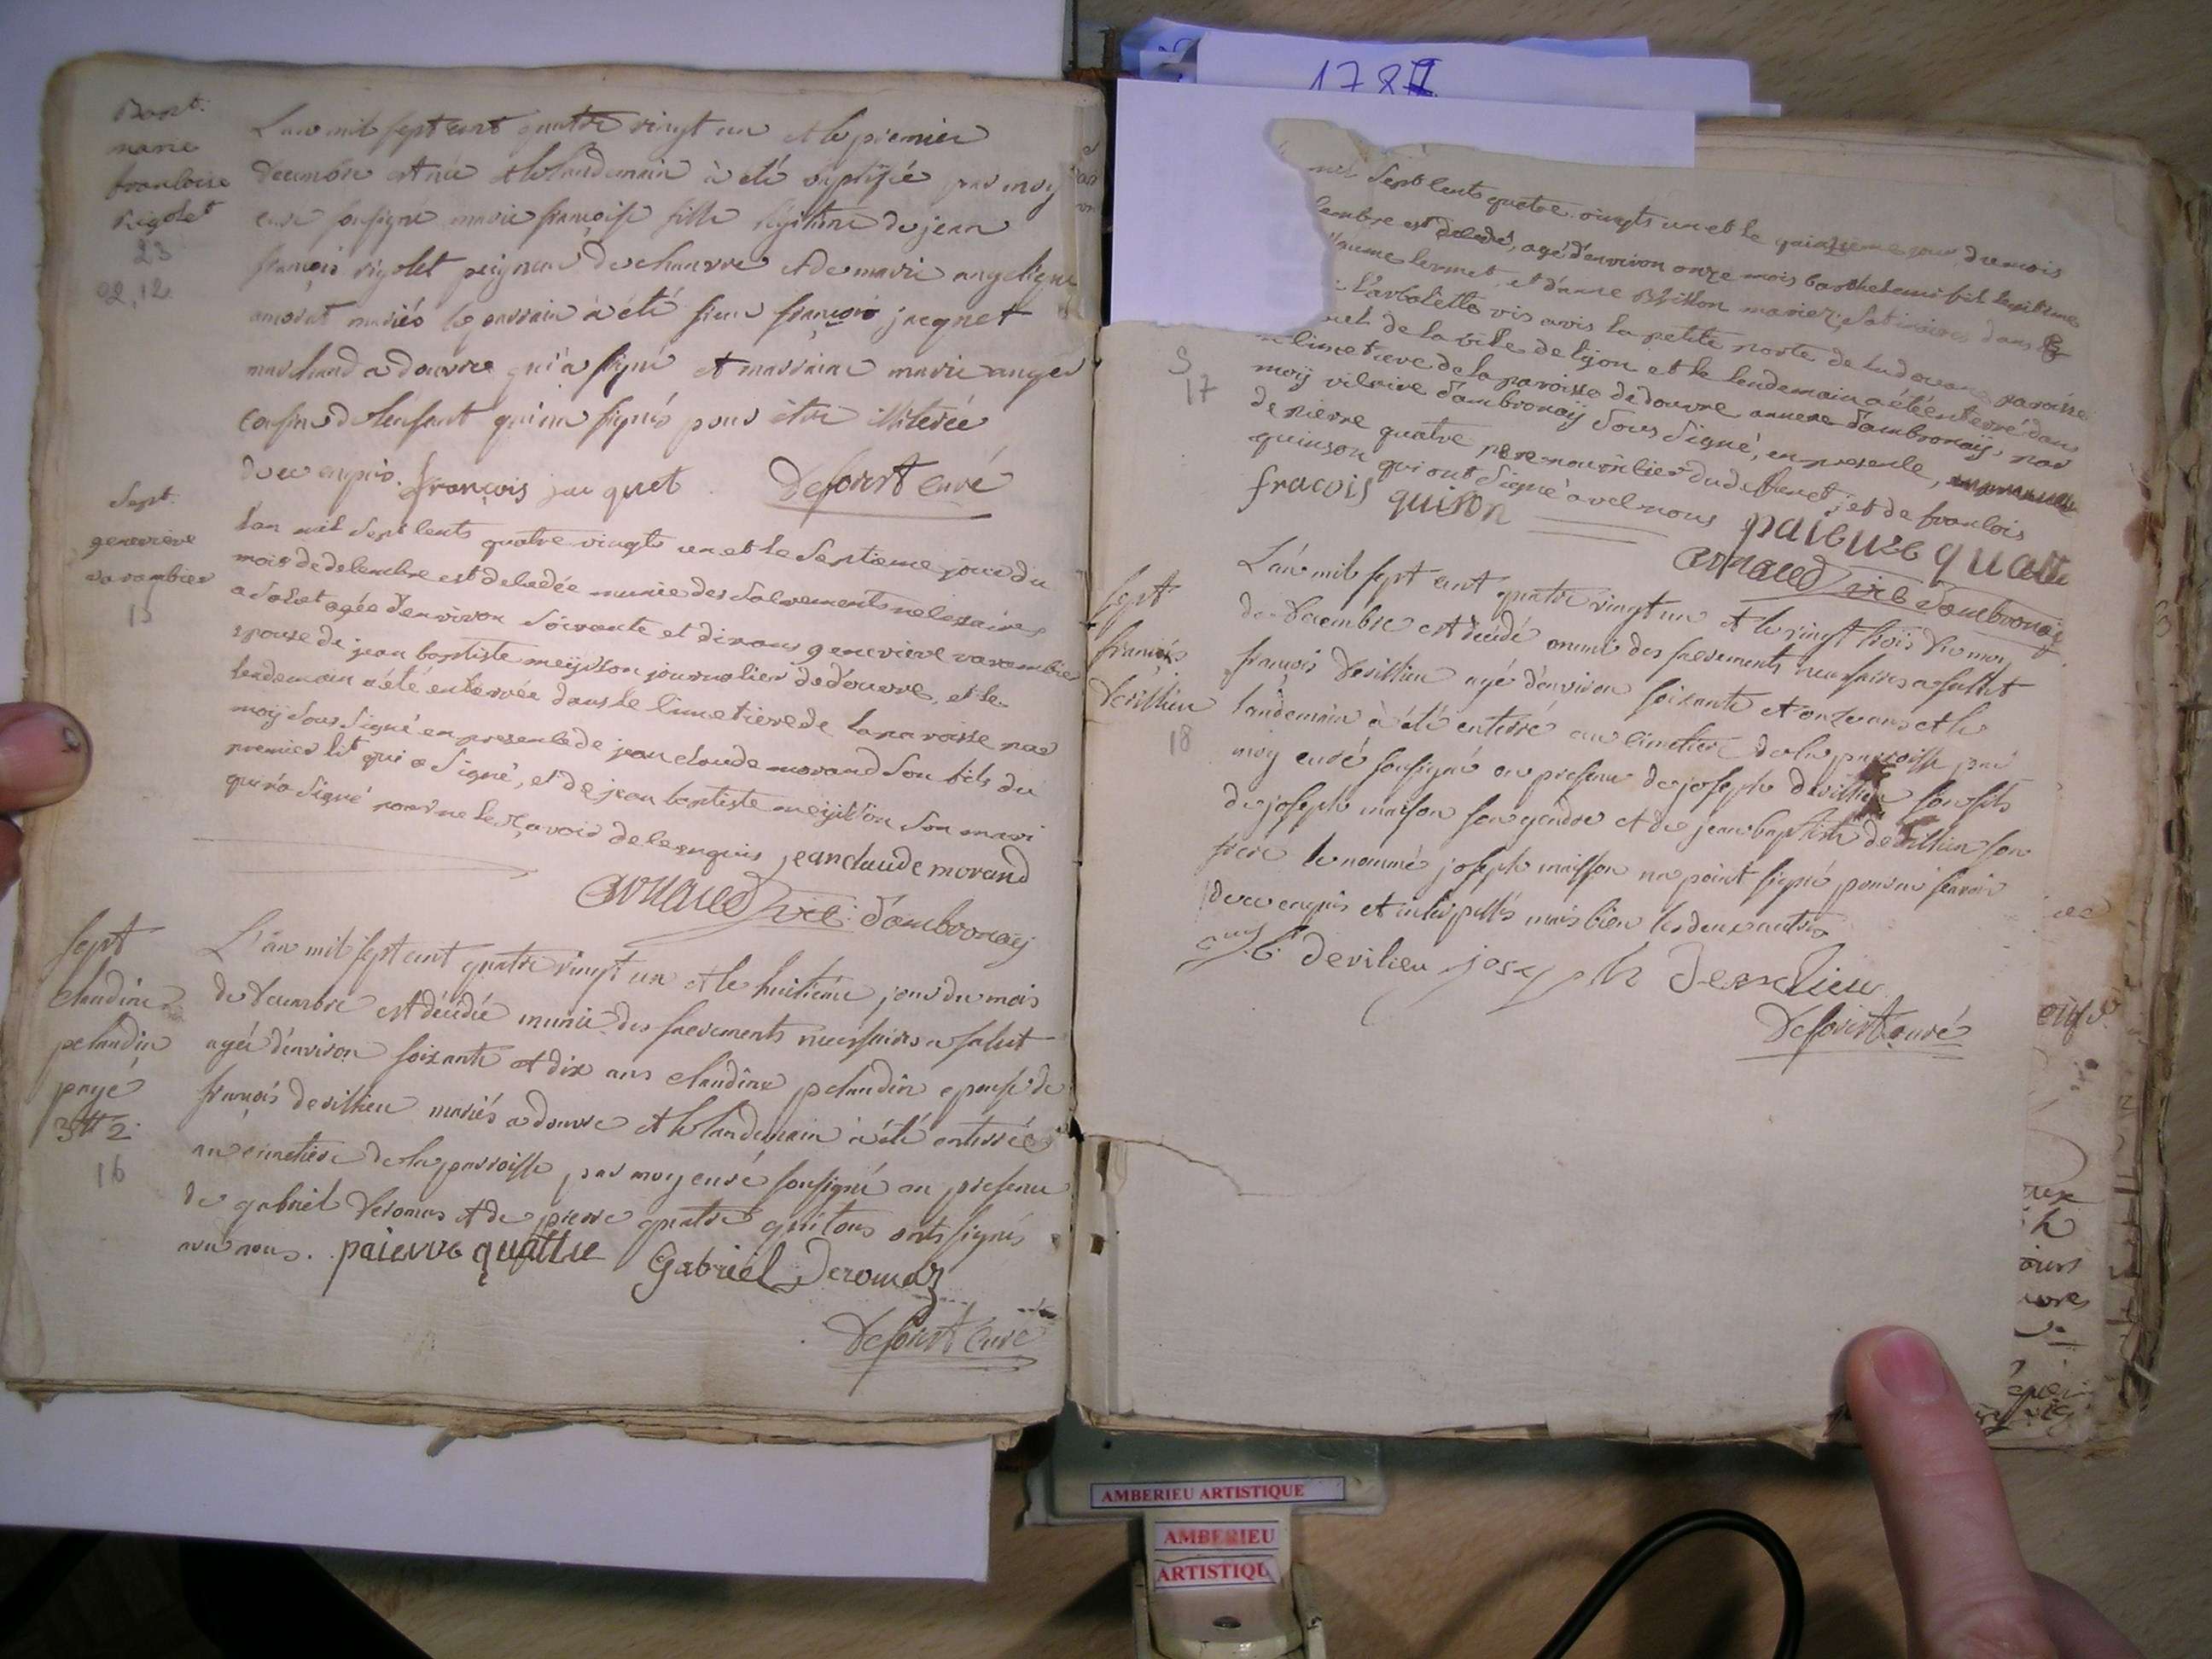 Bapt.
marie
francoise
rigolet
23
02,12
L'an mil sept cent quatre vingt un et le premier
decembre est née et le landemain à été baptisée par moy
curé sousigné marie françoise fille légitime de jean
françois rigolet peigneur de chanvre et de marie angelique
amorat mariés le parrain à été sieur françois jacquet
marchand a douvre qui a signé et marraine marie
de l'enfant qui n'a signés pour être illiterée
de ce enquis. françois jacquet Deforest curé
Sept.
genevieve
varambier
15
L'an mil sept cents quatre vingts un et le septieme jour du
mois de decembre est decedée munie des sacrements necessaires
a salut agée d'environ soixante et dix ans genevieve varambier
epouse de jean baptiste meysson journalier de douvre, et le
lendemain a été enterrée dans le cimetiere de la paroisse par
moy sous signé en presence de jean claude morand son fils du
premier lit qui a signé, et de jean baptiste meysson son mari
qui n'a signé pour ne le sçavoir de ce enquis jean claude morand
arnaud vic: d'ambronay
Sept
claudine
pelandin
payé
3tt 2
16
L'an mil sept cent quatre vingt un et le huitieme jour du mois
de decembre est décédée munie des sacrements necessaires a salut
agée d'environ soixante et dix ans claudine pelandin epouse de
françois devillieu mariés a douvre et le landemain à été enterrée
au cimetière de la parroisse par moy curé sousigné en presence
de gabriel deromas et de pierre quatre qui tous onts signés
avec nous. paierre quattre Gabriel Deromaz
Deforest curé
1787
mil sept cents quatre vingts un et le quinzieme jour du mois
cembre est decedé, agé d'environ onze mois barthelemi fils legitime
llaume lermet, et d'anne Brillon mariez, satinaires dans la
l'arbalette vis avis la petite porte de paroisse
de la ville de lyon et le lendemain a été enterré dans
le cimetiere de la paroisse de douvre annexe d'ambronay, par
moy vicaire d'ambronay sous signé, en presence,
de pierre quatre pere nourricier dud lermet, et de francois
quinson qui ont signé avec nous
fracois quison paieuze quatte
arnaud vic d'ambronay
S
17
Sept
françois
devillieu
18
L'an mil sept cent quatre vingt un et le vingt trois du mois
de decembre est décédé muni des sacrements necessaires a salut
françois devillieu agé d'environ soixante et onze ans et le
landemain à été enterré au cimetiere de la parroisse par
moy curé sousigné en presence de joseph devillieu son fils
de joseph maison son gendre et de jean baptiste devillieu son
frere le nommé joseph maisson na point signé pour ne sçavoir
de ce enquis et interpellés mais bien les deux autres
devilieu joseph devilieu
Deforest curé
AMBERIEU ARTISTIQUE
AMBERIEU
ARTISTIQU